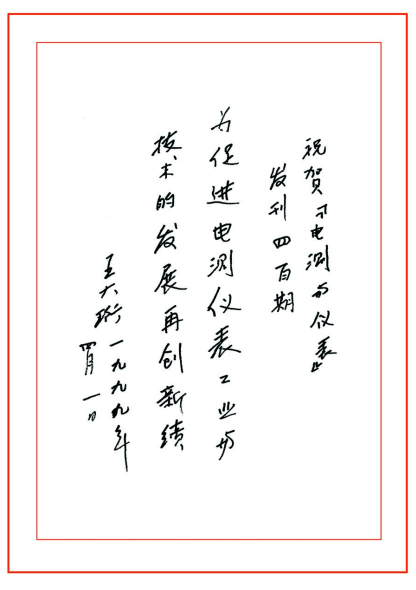 祝贺《电测与仪表》
发刊四百期
为促进电测仪表工业与
技术的发展再创新绩
王大珩一九九九年
四月一日